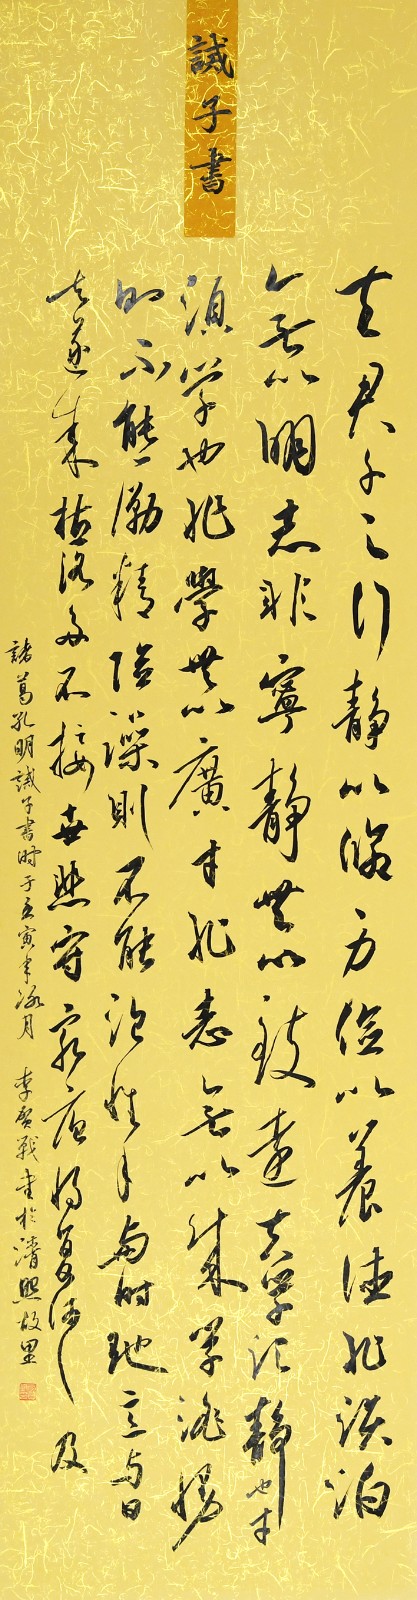 誡子書
夫君子之行静以脩身儉以養德非淡泊
無以明志非寧静無以致遠夫學須静也才
須學也非學無以廣才非志無以成學淫慢
則不能勵精險躁則不能治性年與時馳意與日
去遂成枯落多不接世悲守窮廬將復何及
諸葛孔明誡子書时于壬寅年涂月 李戰书於清照故里